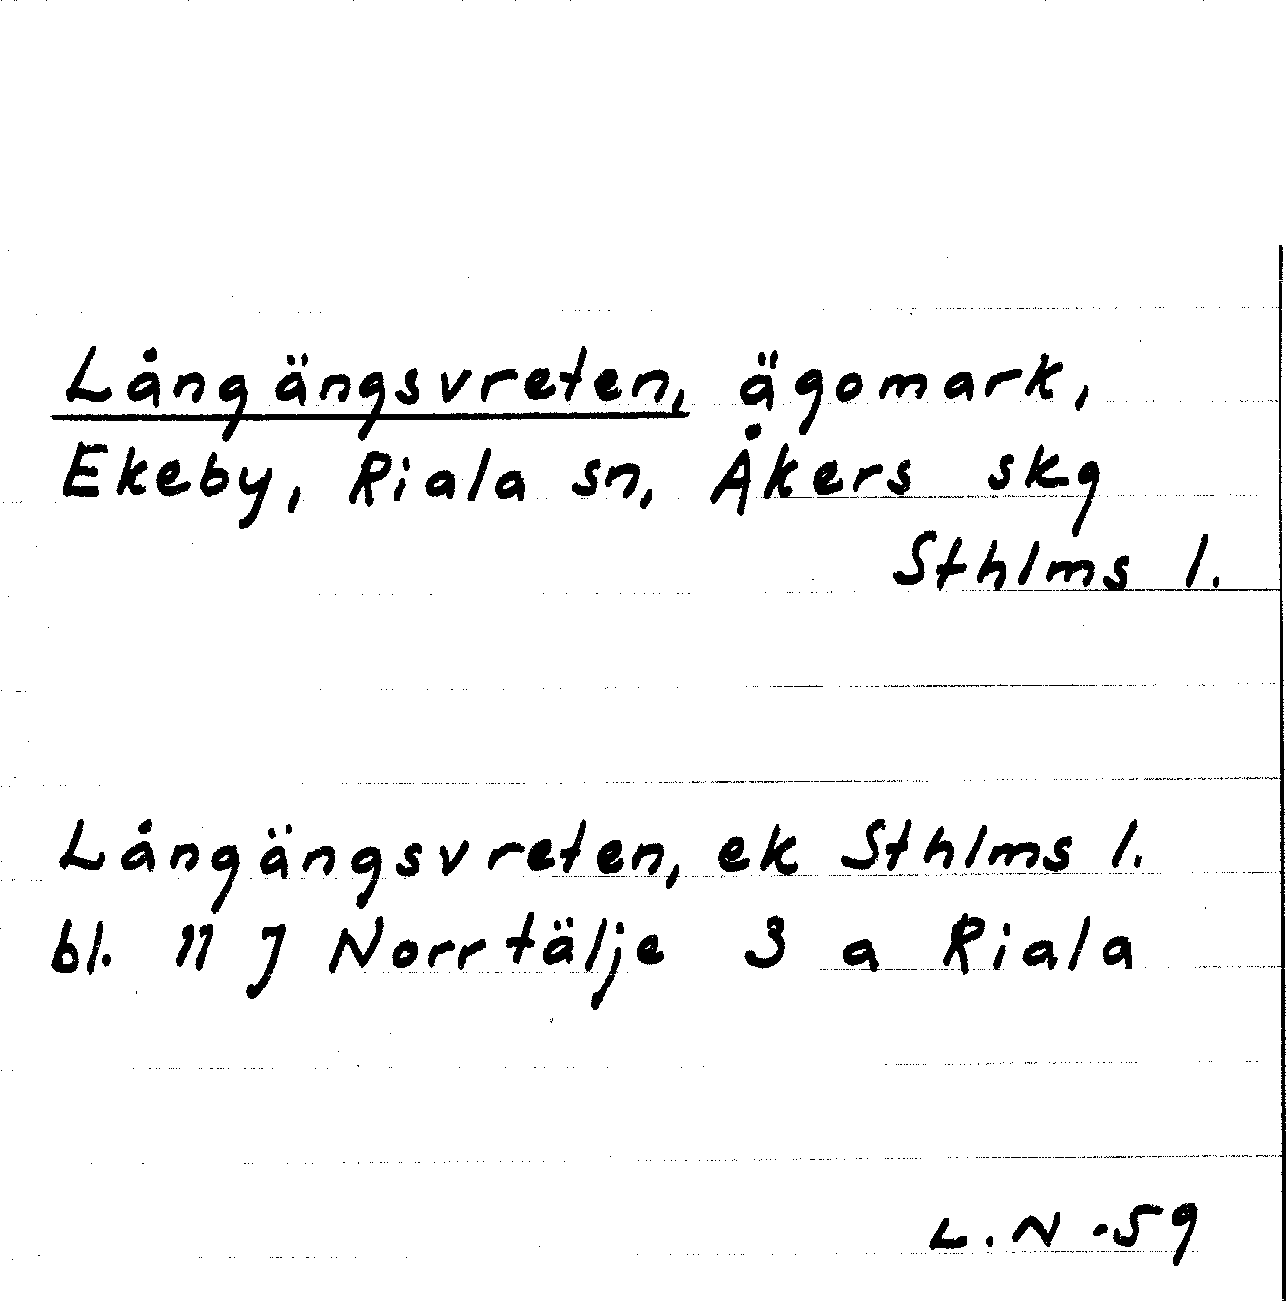 Långängsvreten, ägomark,
Ekeby, Riala sn, Åkers skg
Sthlms l.
Långängsvreten, ek Sthlms l.
bl. 11 J Norrtälje 3 a Riala
L. N -59